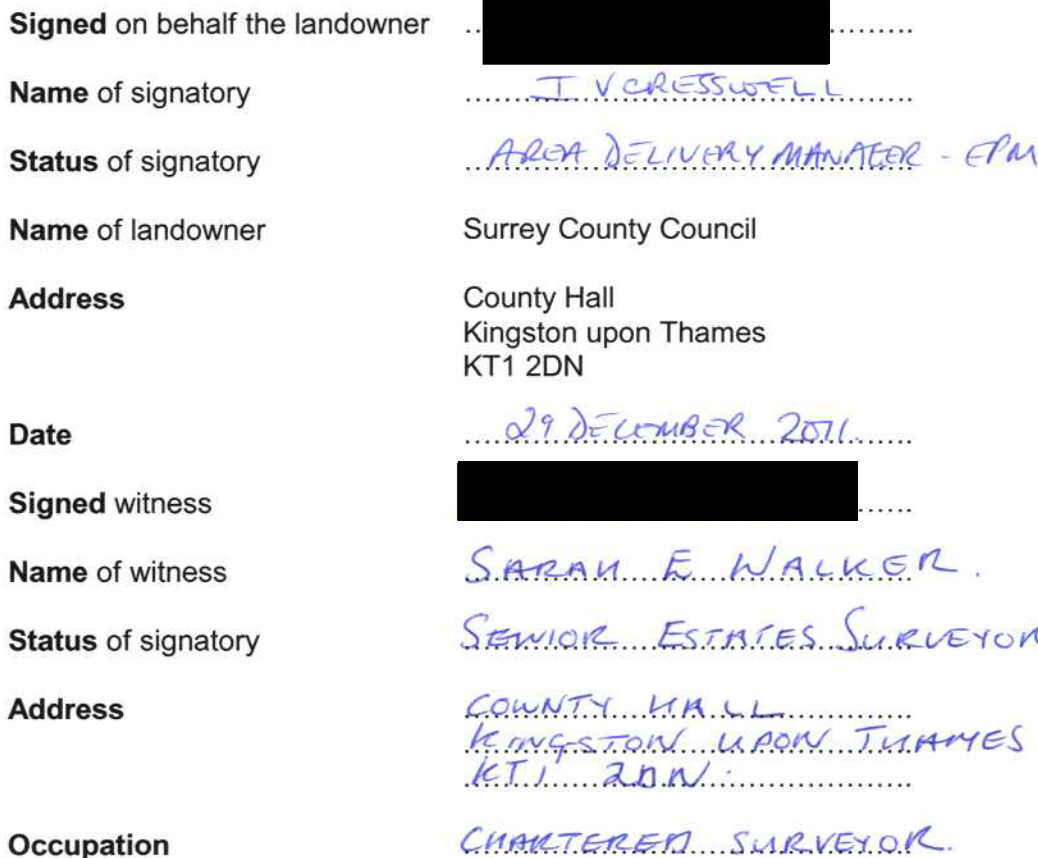 Signed on behalf the landowner
Name of signatory I V CRESSWELL
Status of signatory AREA DELIVERY MANAGER - EPM
Name of landowner Surrey County Council
Address County Hall
Kingston upon Thames
KT1 2DN
Date 29 DECEMBER 2011.
Signed witness
Name of witness SARAH E WALKER.
Status of signatory SENIOR ESTATES SURVEYOR
Address COUNTY HALL
KINGSTON UPON THAMES
KT1 2DN.
Occupation CHARTERED SURVEYOR.